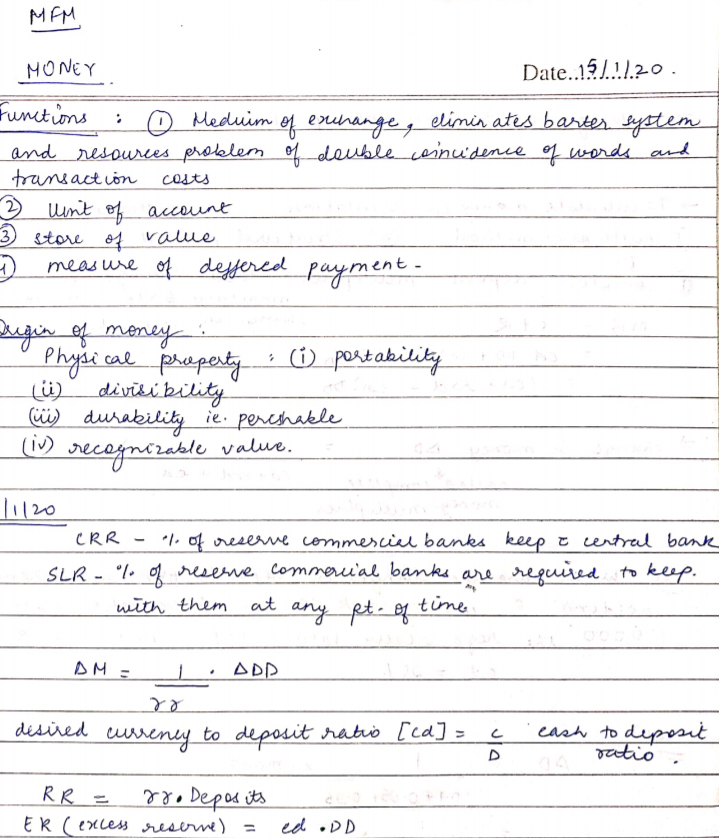 MFM
MONEY
Date..15/1/20.
Functions : ① Meduim of exchange, eliminates barter system
and resources problem of double coincidence of words and
transaction costs
② Unit of account
③ store of value
④ measure of deffered payment -
Origin of money :
Physical property : (i) portability
(ii) divisibility
(iii) durability ie. pershable
(iv) recognizable value.
/1/20
CRR - % of reserve commercial banks keep c̄ central bank
SLR - % of reserve commercial banks are required to keep.
with them at any pt. of time
ΔM = 1/rr . ΔDD
desired currency to deposit ratio [cd] = c/D cash to deposit ratio.
RR = rr. Deposits
ER (excess reserve) = ed .DD